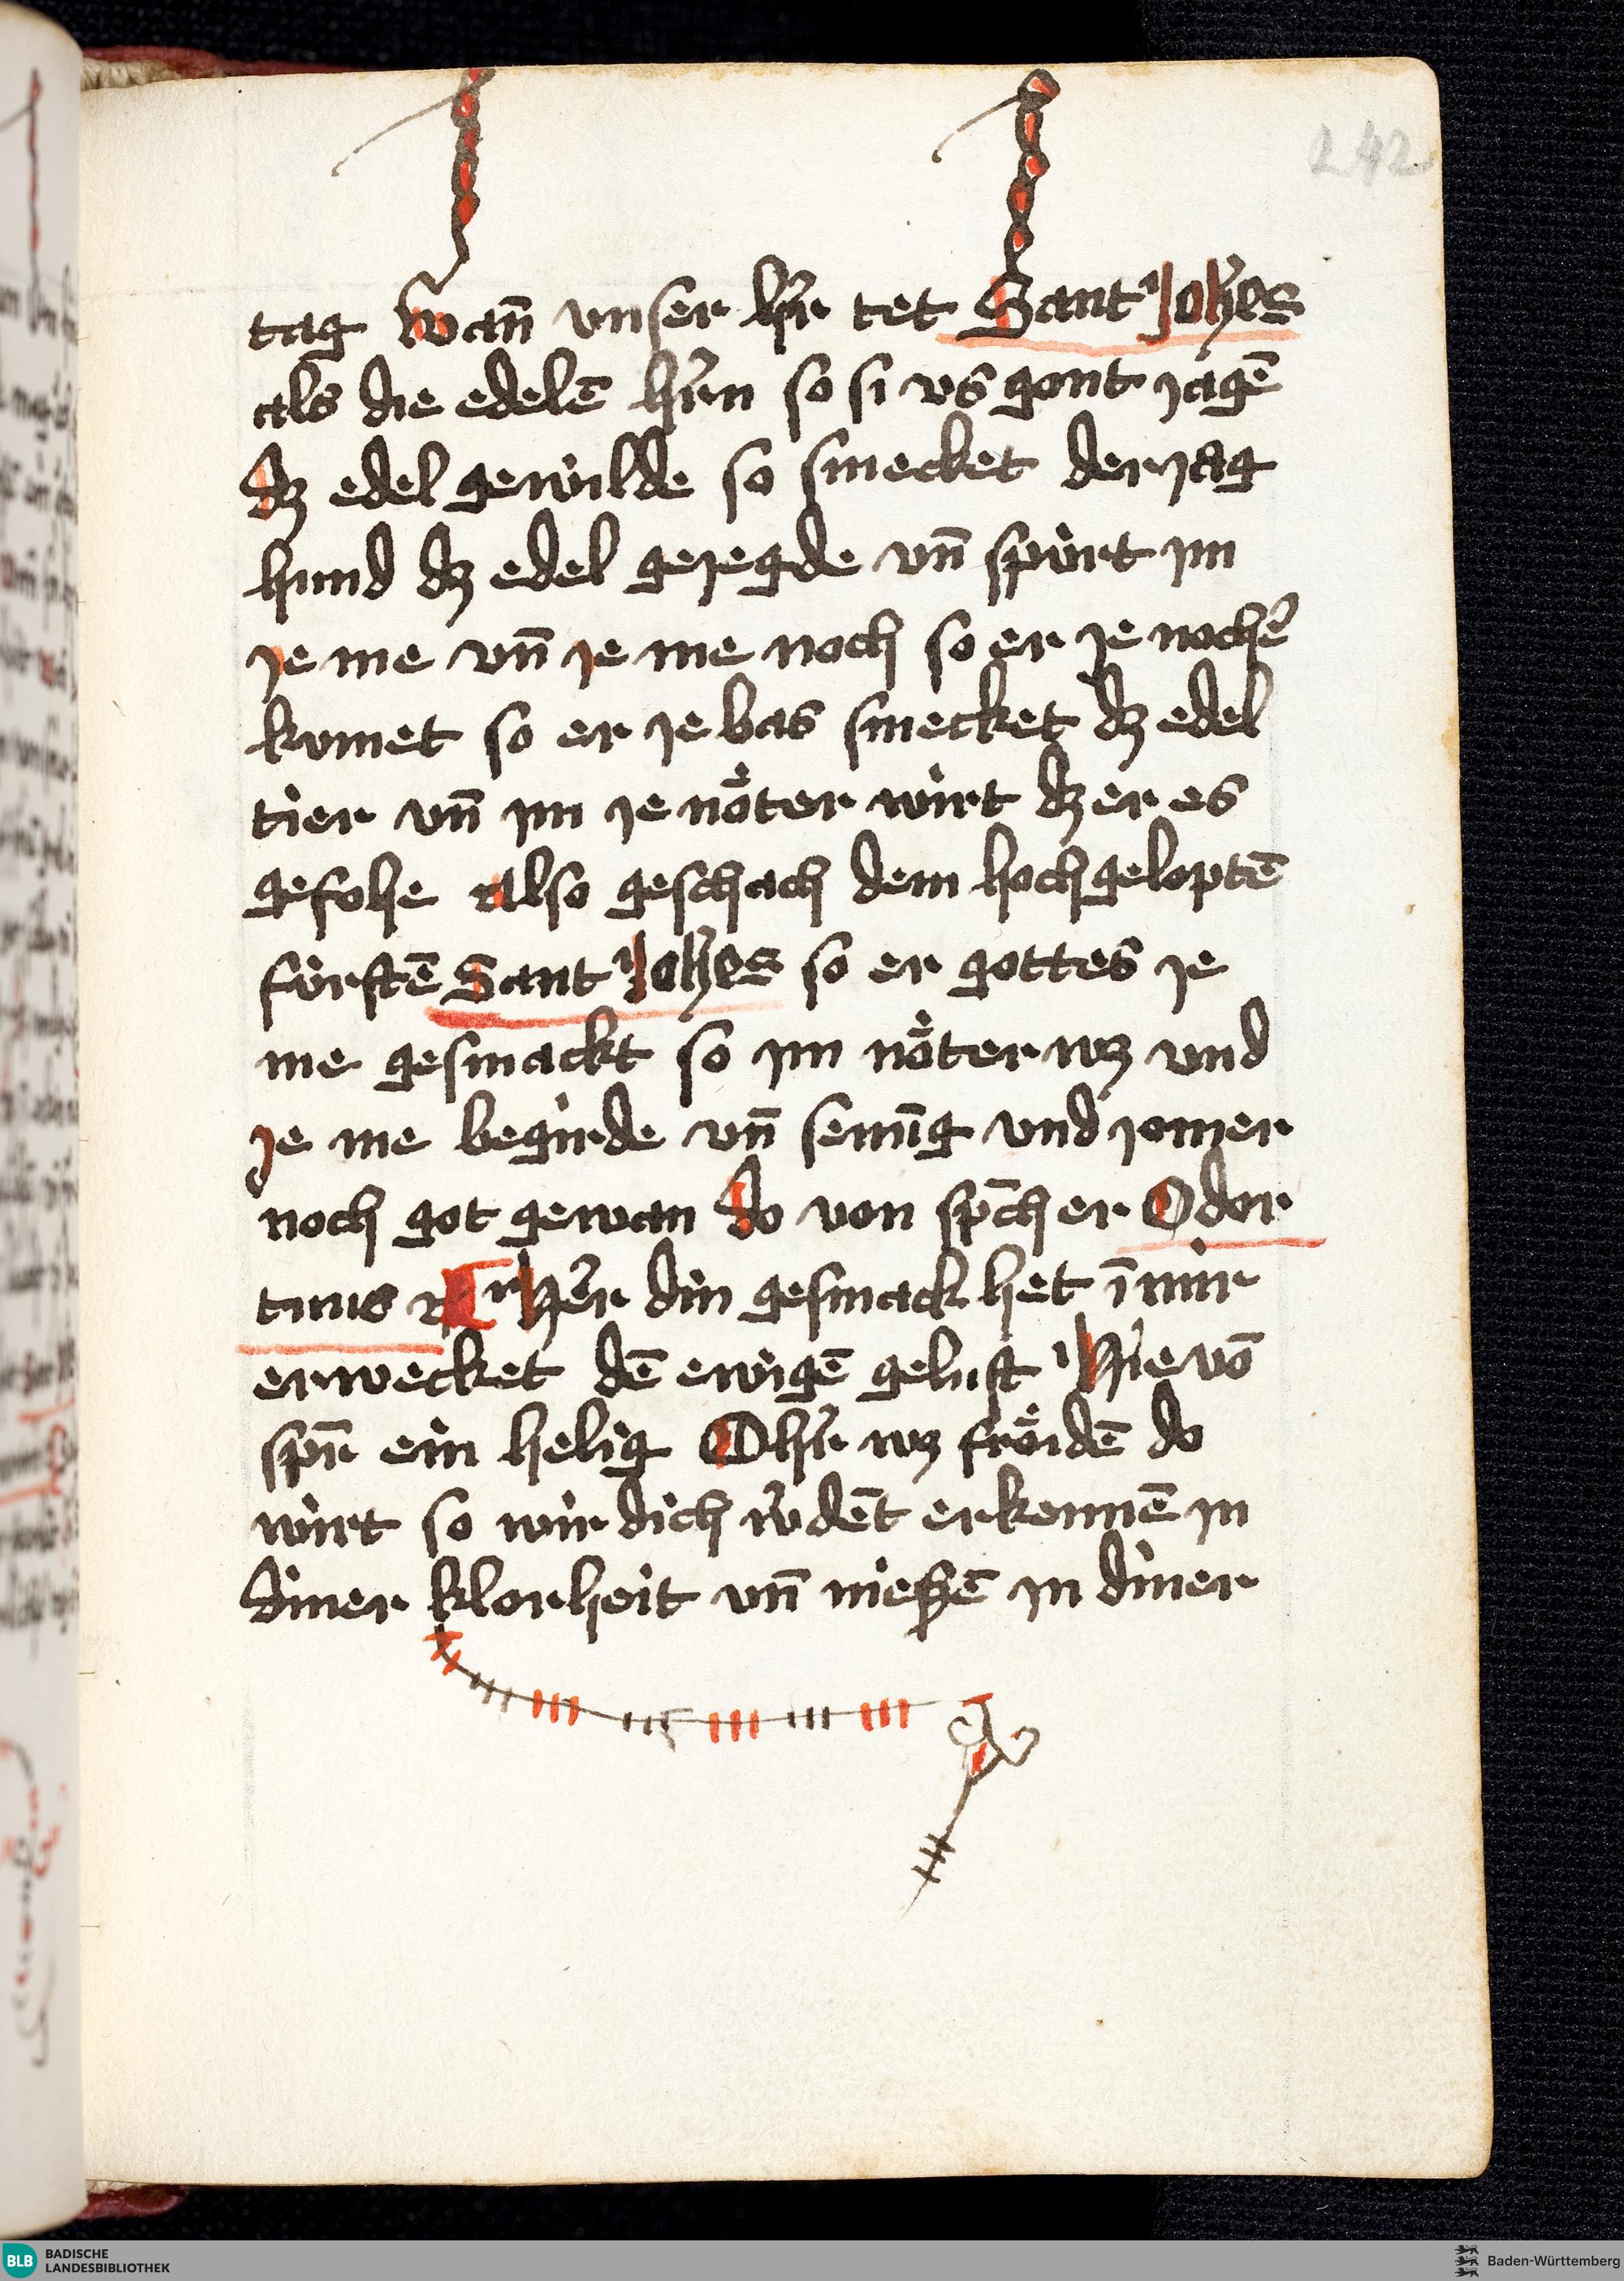 242
tag wan̄ vnser hr̄ tet Sant Joh̄es
als die edelē hr̄n so si vs gont jagē
dz edel gewilde so smecket der jag
hund dz edel gejegde vn̄ spùrt im
je me vn̄ je me noch so er je nochē
kumet so er je bas smecket dz edel
tier vn̄ im je nöter wirt dz er es
gefohe Also geschach dem hochgeloptē
fùrstē Sant Joh̄es so er gottes je
me gesmackt so im nöter wz vnd
je me begirde vn̄ senūg vnd jomer
noch got gewan do von sp̄ch er Odor
tuus Her̄ din gesmack het ī mir
erwecket dē ewigē gelust Hie vō
spr̄ ein helig O hr̄ wz fröidē do
wirt so wir dich w̄dēt erkennē in
diner klorheit vn̄ niessē in diner
BLB BADISCHE
LANDESBIBLIOTHEK
Baden-Württemberg